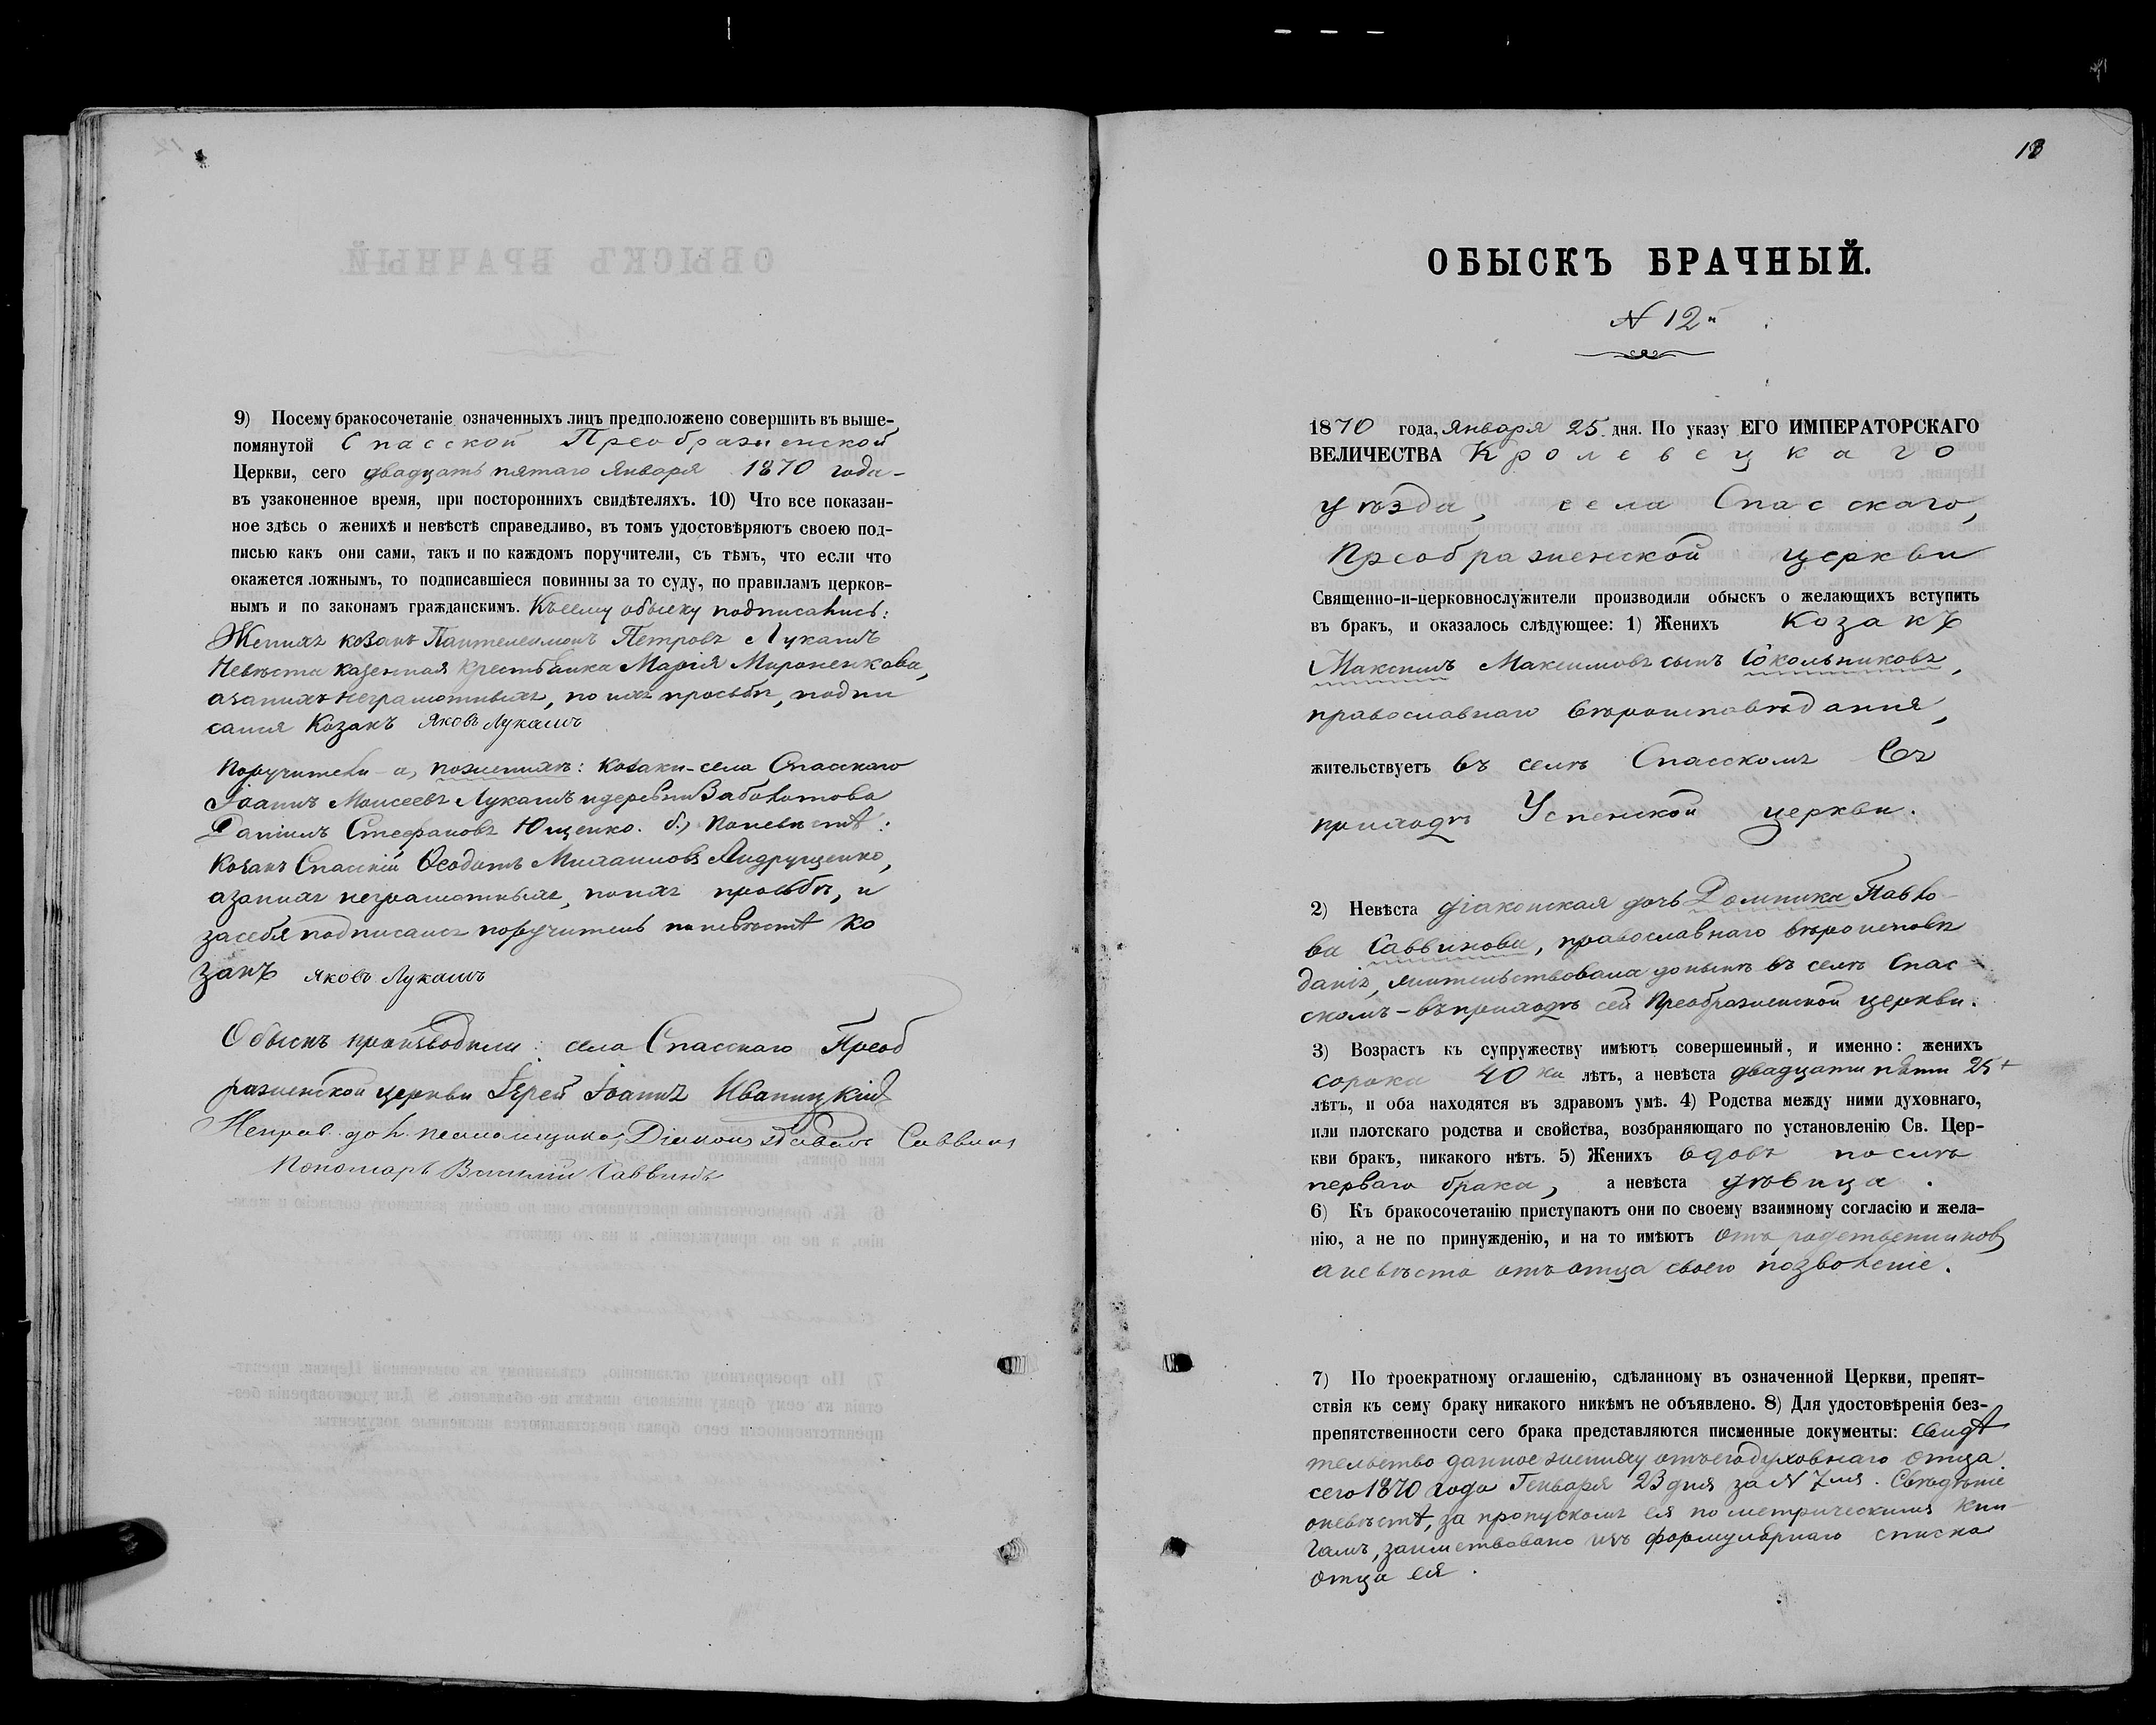 9) Посему бракосочетаніе означенныхъ лицъ предположено совершить въ выше-
помянутой Спасской Преображенской
Церкви, сего двадцать пятаго Января 1870 года-
въ узаконенное время, при постороннихъ свидѣтеляхъ. 10) Что все показан-
ное здѣсь о женихѣ и невѣстѣ справедливо, въ томъ удостовѣряютъ своею под-
писью какъ они сами, такъ и по каждомъ поручители, съ тѣмъ, что если что
окажется ложнымъ, то подписавшіеся повинны за то суду, по правиламъ церков-
нымъ и по законамъ гражданскимъ. Къ сему обыску подписались:
Женихъ козакъ Пантелеимонъ Петровъ Лукашъ
Невѣста казенная крестьянка Марія Мироненкова,
а за нихъ неграмотныхъ, по ихъ просьбѣ, подпи
сался Козакъ Яковъ Лукашъ
Поручители – а, по женихѣ: козаки – села Спасскаго
Іоаннъ Моисеевъ Лукашъ и деревни Заболотова
Даніилъ Стефановъ Ющенко. б.) По невѣстѣ:
Козакъ Спасскій Ѳеодотъ Михаиловъ Андрущенко,
а за нихъ неграмотныхъ, по ихъ просьбѣ, и
за себя подписался поручитель по невѣстѣ Ко
закъ Яковъ Лукашъ
Обыскъ производили: села Спасскаго Преоб
раженской церкви Іерей Іоаннъ Иваницкій
Исправ. дол. псаломщика, Діаконъ Павелъ Саввинъ
Пономарь Василій Саввинъ
13
ОБЫСКЪ БРАЧНЫЙ.
N 12й
1870 года, Января 25 дня. По указу ЕГО ИМПЕРАТОРСКАГО
ВЕЛИЧЕСТВА Кролевецкаго
уѣзда, села Спасскаго,
Преображенской церкви
Священно-и-церковнослужители производили обыскъ о желающихъ вступить
въ бракъ, и оказалось слѣдующее: 1) Женихъ Козакъ
Максимъ Максимовъ сынъ Сокольниковъ,
православнаго вѣроисповѣданія,
жительствуетъ въ селѣ Спасскомъ въ
приходѣ Успенской церкви.
2) Невѣста діаконская дочь Домника Павло-
ва Саввинова, православнаго вѣроисповѣ
данія, жительствовала донынѣ въ селѣ Спас-
скомъ – въ приходѣ сей Преображенской церкви.
3) Возрастъ къ супружеству имѣютъ совершенный, и именно: женихъ
сорока 40ка лѣтъ, а невѣста двадцати пяти 25т
лѣтъ, и оба находятся въ здравомъ умѣ. 4) Родства между ними духовнаго,
или плотскаго родства и свойства, возбраняющаго по установленію Св. Цер-
кви бракъ, никакого нѣтъ. 5) Женихъ вдовъ послѣ
перваго брака, а невѣста дѣвица.
6) Къ бракосочетанію приступаютъ они по своему взаимному согласію и жела-
нію, а не по принужденію, и на то имѣютъ отъ родственниковъ
а невѣста отъ отца своего позволеніе.
7) По троекратному оглашенію, сдѣланному въ означенной Церкви, препят-
ствія къ сему браку никакого никѣмъ не объявлено. 8) Для удостовѣренія без-
препятственности сего брака представляются писменные документы: свидѣ
тельство данное жениху отъ его духовнаго отца
сего 1870 года Генваря 23 дня за N 7мъ. Свѣдѣніе
о невѣстѣ, за пропускомъ ея по метрическимъ кни-
гамъ, заимствовано изъ формулярнаго списка
отца ея.